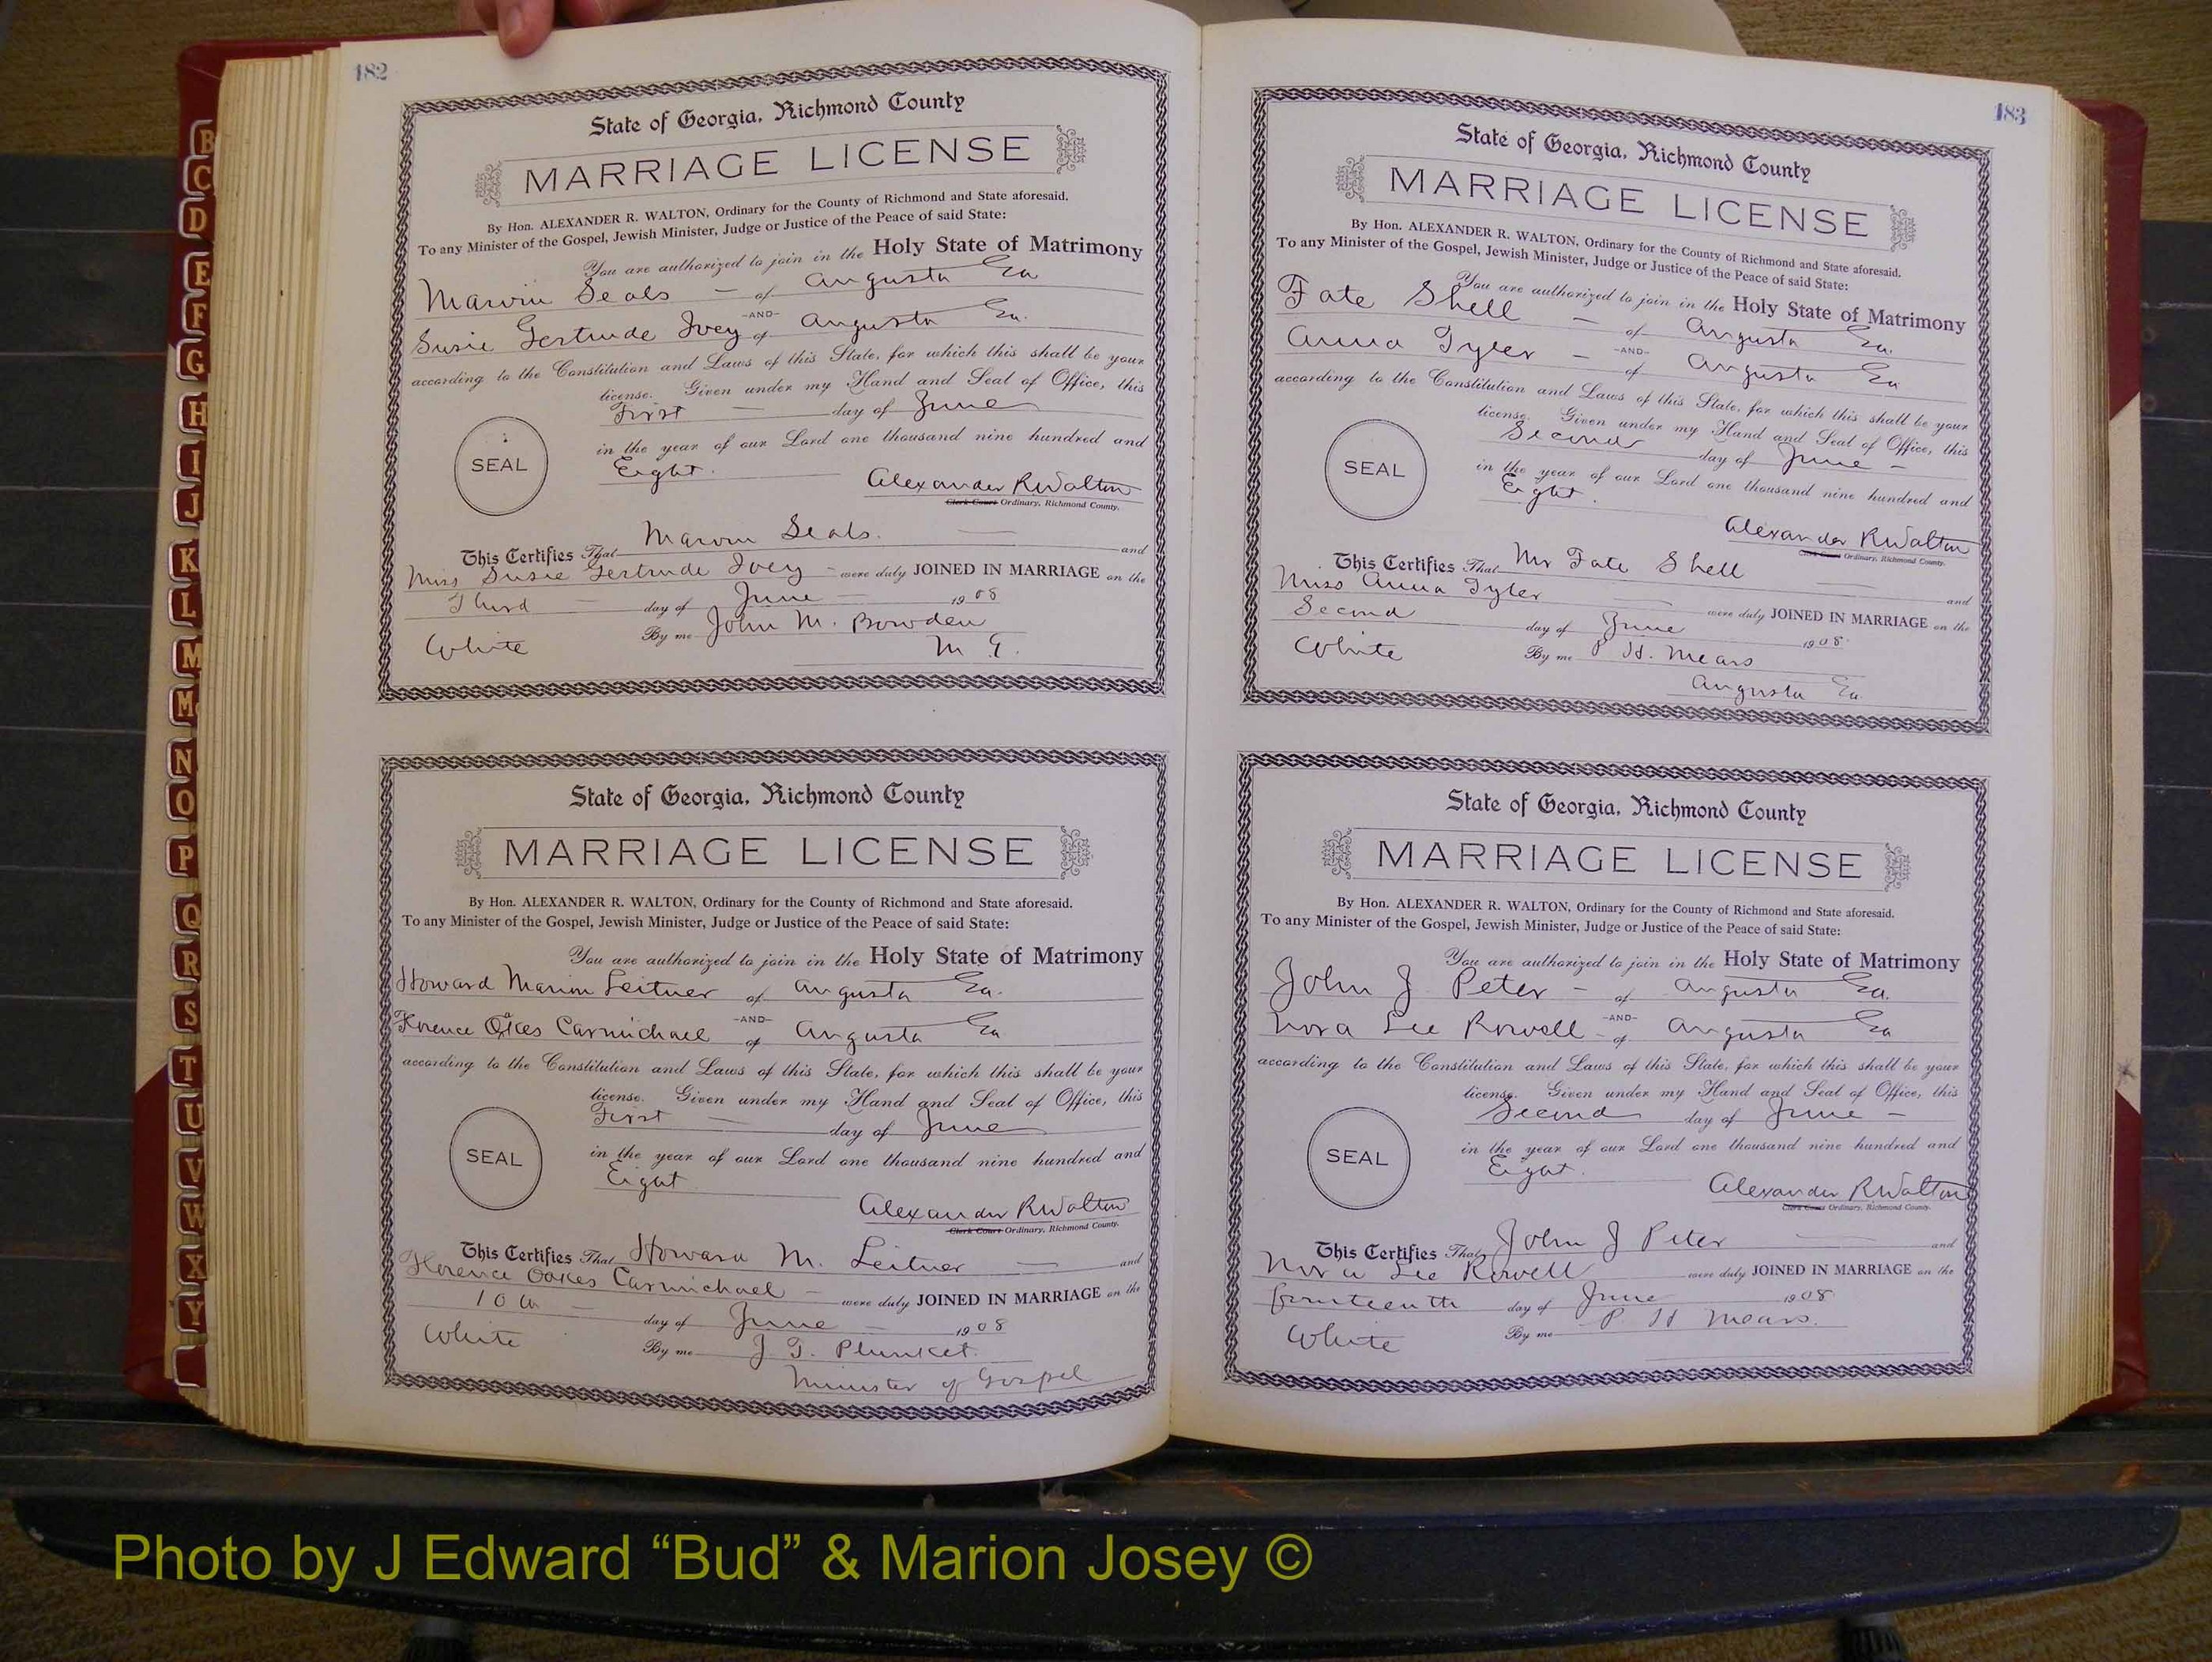 182
State of Georgia, Richmond County
MARRIAGE LICENSE
By Hon. ALEXANDER R. WALTON, Ordinary for the County of Richmond and State aforesaid.
To any Minister of the Gospel, Jewish Minister, Judge or Justice of the Peace of said State:
You are authorized to join in the Holy State of Matrimony
Marvin Seals - of Augusta Ga
-AND-
Susie Gertrude Ivey of Augusta Ga.
according to the Constitution and Laws of this State, for which this shall be your
license. Given under my Hand and Seal of Office, this
First - day of June
SEAL
in the year of our Lord one thousand nine hundred and
Eight.
Alexander R Walton
Clerk Court Ordinary, Richmond County.
This Certifies That Marvin Seals. and
Miss Susie Gertrude Ivey - were duly JOINED IN MARRIAGE on the
Third - day of June - 1908
White By me John M. Bowden
M G.
State of Georgia, Richmond County
MARRIAGE LICENSE
By Hon. ALEXANDER R. WALTON, Ordinary for the County of Richmond and State aforesaid.
To any Minister of the Gospel, Jewish Minister, Judge or Justice of the Peace of said State:
You are authorized to join in the Holy State of Matrimony
Howard Marion Leitner of Augusta Ga.
-AND-
Florence Oakes Carmichael of Augusta Ga
according to the Constitution and Laws of this State, for which this shall be your
license. Given under my Hand and Seal of Office, this
First - day of June
SEAL
in the year of our Lord one thousand nine hundred and
Eight
Alexander R Walton
Clerk Court Ordinary, Richmond County.
This Certifies That Howard M. Leitner - and
Florence Oakes Carmichael - were duly JOINED IN MARRIAGE on the
10th - day of June - 1908
White By me J. T. Plunket.
Minister of Gospel
183
State of Georgia, Richmond County
MARRIAGE LICENSE
By Hon. ALEXANDER R. WALTON, Ordinary for the County of Richmond and State aforesaid.
To any Minister of the Gospel, Jewish Minister, Judge or Justice of the Peace of said State:
You are authorized to join in the Holy State of Matrimony
Fate Shell - of Augusta Ga.
-AND-
Anna Tyler - of Augusta Ga
according to the Constitution and Laws of this State, for which this shall be your
license. Given under my Hand and Seal of Office, this
Second day of June -
SEAL
in the year of our Lord one thousand nine hundred and
Eight.
Alexander R Walton
Clerk Court Ordinary, Richmond County.
This Certifies That Mr Fate Shell and
Miss Anna Tyler were duly JOINED IN MARRIAGE on the
Second day of June 1908.
White By me P H. Mears
Augusta Ga
State of Georgia, Richmond County
MARRIAGE LICENSE
By Hon. ALEXANDER R. WALTON, Ordinary for the County of Richmond and State aforesaid.
To any Minister of the Gospel, Jewish Minister, Judge or Justice of the Peace of said State:
You are authorized to join in the Holy State of Matrimony
John J Peter - of Augusta Ga.
-AND-
Nora Lee Rowell - of Augusta Ga
according to the Constitution and Laws of this State, for which this shall be your
license. Given under my Hand and Seal of Office, this
Second day of June -
SEAL
in the year of our Lord one thousand nine hundred and
Eight.
Alexander R Walton
Clerk Court Ordinary, Richmond County.
This Certifies That John J Peter and
Nora Lee Rowell were duly JOINED IN MARRIAGE on the
fourteenth day of June 1908
White By me P. H Mears.
B
C
D
E
F
G
H
I
J
K
L
M
Mc
N
O
P
Q
R
S
T
U
V
W
X
Y
Photo by J Edward “Bud” & Marion Josey ©